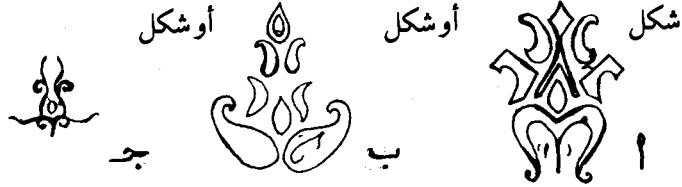 شكل أو شكل أو شكل
ا ب جـ